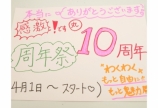 本当に
ありがとうございます
感動!です
周年祭
10周年
"わくわく"を
もっと自由に
もっと魅力
4月1日〜スタート